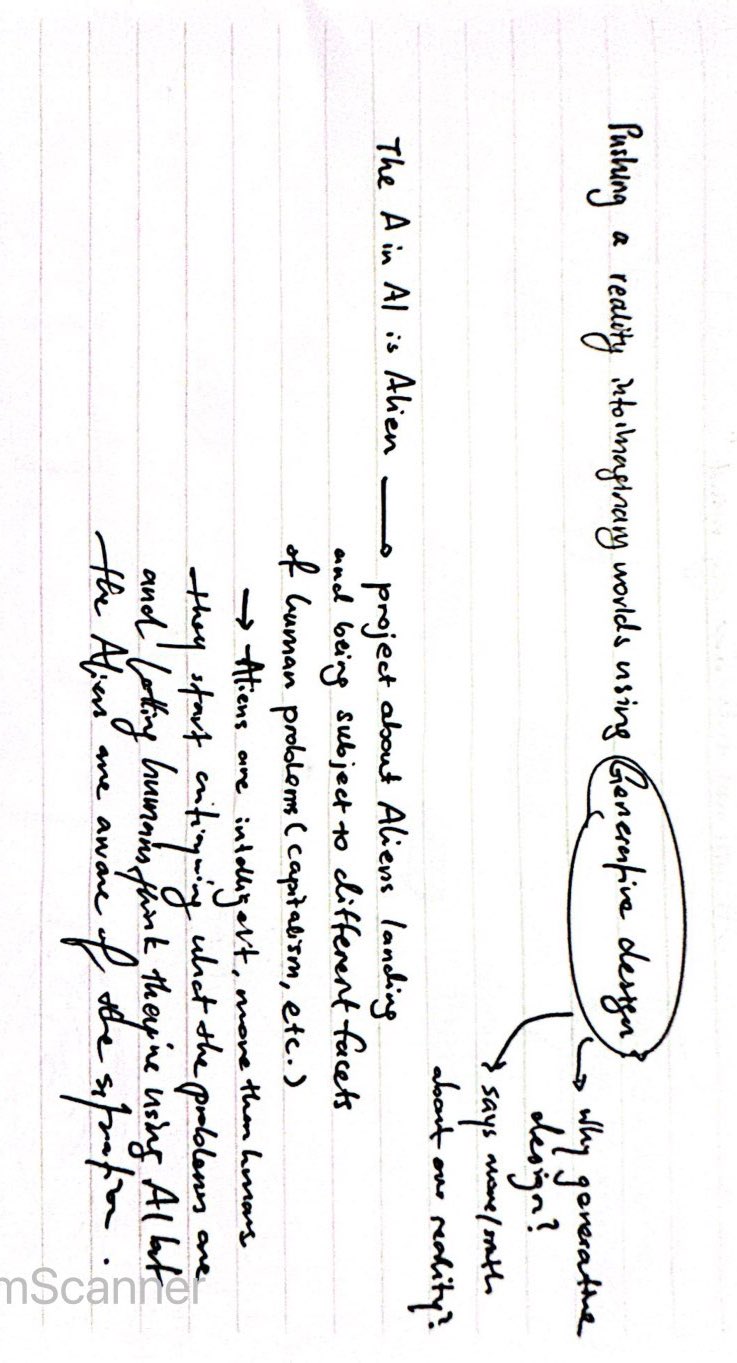 Pushing a reality into imaginary worlds using Generative design?
→ why generative
design?
→ says more/smth
about our reality?
The A in AI is Alien → project about Aliens landing
and being subject to different facets
of human problems (capitalism, etc.)
→ Aliens are intelligent, more than humans
they start critiquing what the problems are
and letting humans think they're using AI but
the Aliens are aware of the situation.
mScanner